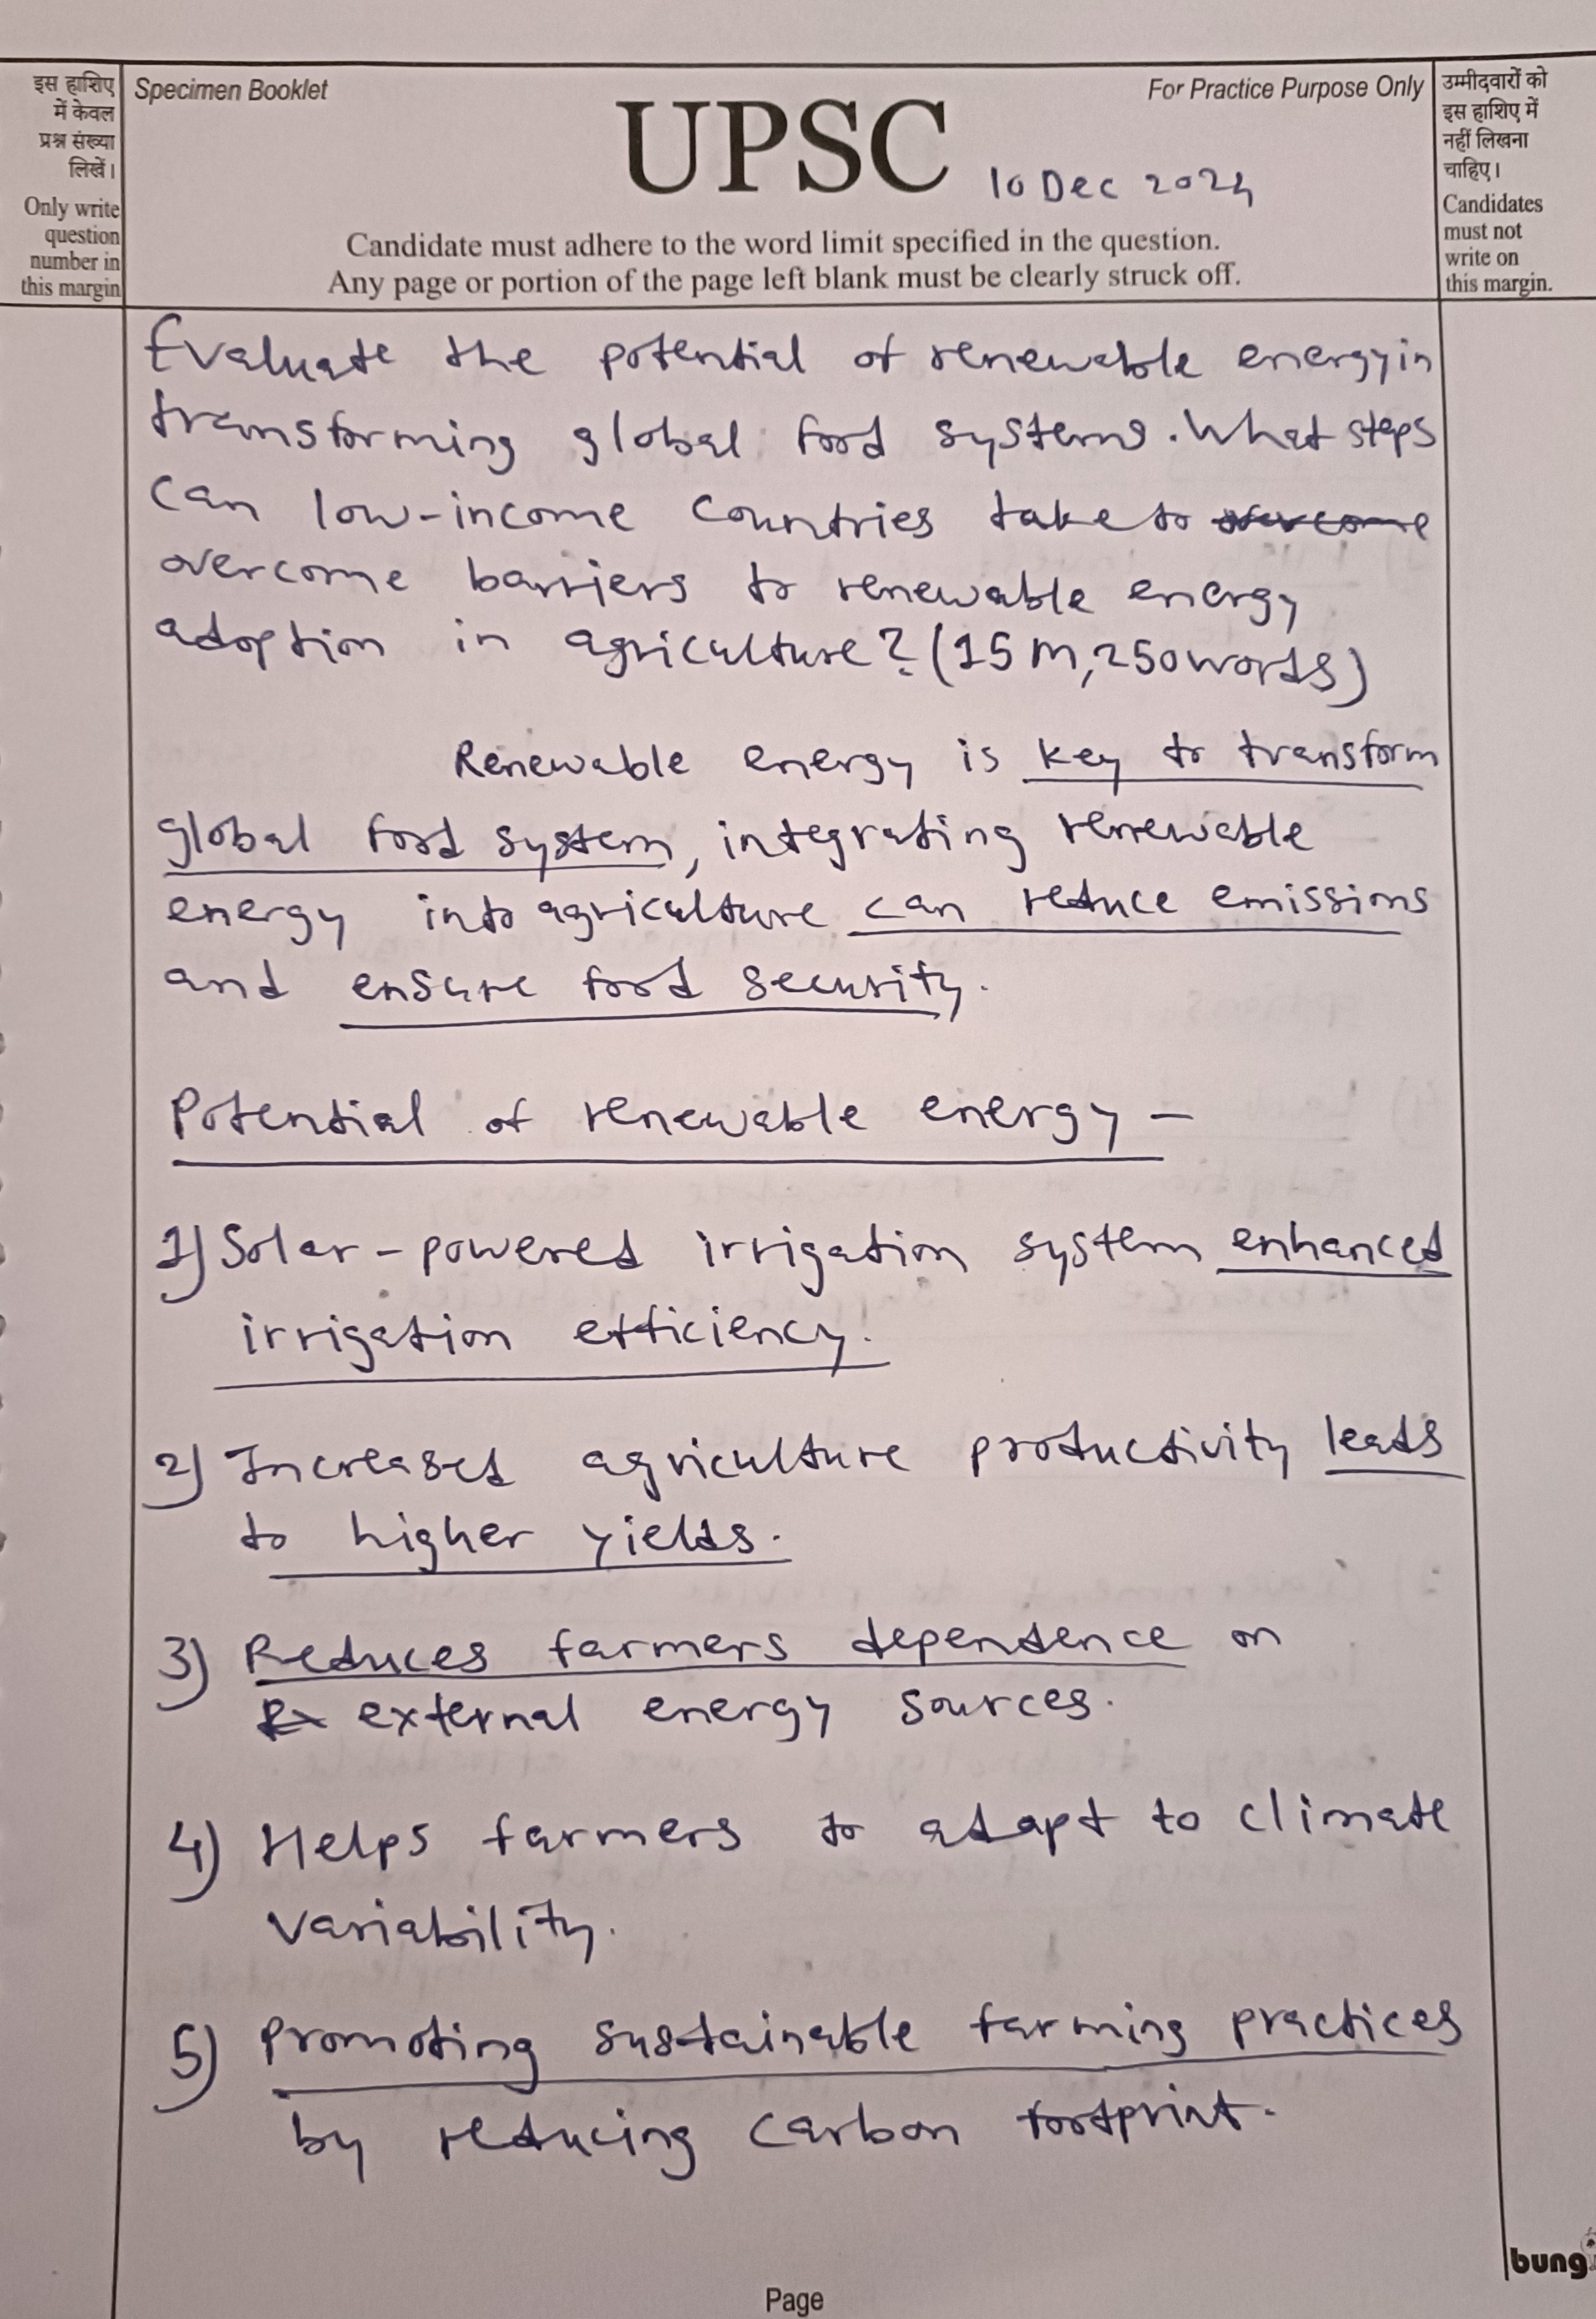 इस हाशिए
में केवल
प्रश्न संख्या
लिखें।
Only write
question
number in
this margin
Specimen Booklet
For Practice Purpose Only
UPSC
10 Dec 2024
Candidate must adhere to the word limit specified in the question.
Any page or portion of the page left blank must be clearly struck off.
उम्मीदवारों को
इस हाशिए में
नहीं लिखना
चाहिए।
Candidates
must not
write on
this margin.
Evaluate the potential of renewable energy in
transforming global food systems. What steps
can low-income countries take to overcome
overcome barriers to renewable energy
adoption in agriculture? (15 M, 250 words)
Renewable energy is key to transform
global food system, integrating renewable
energy into agriculture can reduce emissions
and ensure food security.
Potential of renewable energy -
1) Solar-powered irrigation system enhanced
irrigation efficiency.
2) Increased agriculture productivity leads
to higher yields.
3) Reduces farmers dependence on
external energy sources.
4) Helps farmers to adapt to climate
variability.
5) Promoting sustainable farming practices
by reducing carbon footprint.
Page